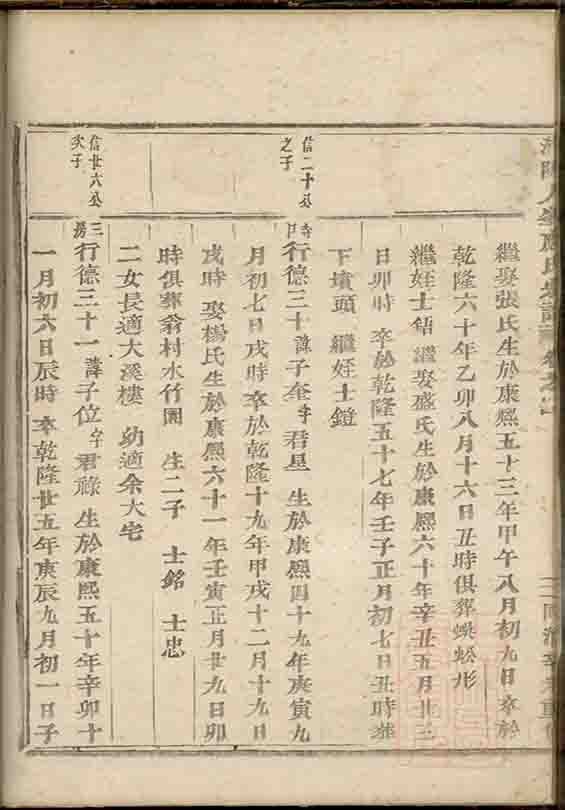 繼娶張氏生於康熙五十三年甲午八月初九日卒於
乾隆六十年乙卯八月十六日丑時俱葬蜈蚣形
繼姪士鋯 繼娶盛氏生於康熙六十年辛丑五月廿三
日卯時 卒於乾隆五十七年壬子正月初七日丑時葬
下墳頭 繼姪士鐙
信二十公
之子
行德三十諱子奎字君星 生於康熙四十九年庚寅九
月初七日戌時 卒於乾隆十九年甲戌十二月十九日
戌時 娶楊氏生於康熙六十一年壬寅正月廿九日卯
時俱葬翁村水竹園 生二子 士銘 士忠
二女長適大溪樓 幼適余大宅
信廿六公
次子
三房
行德三十一諱子位字君祿 生於康熙五十年辛卯十
一月初六日辰時 卒乾隆廿五年庚辰九月初一日子